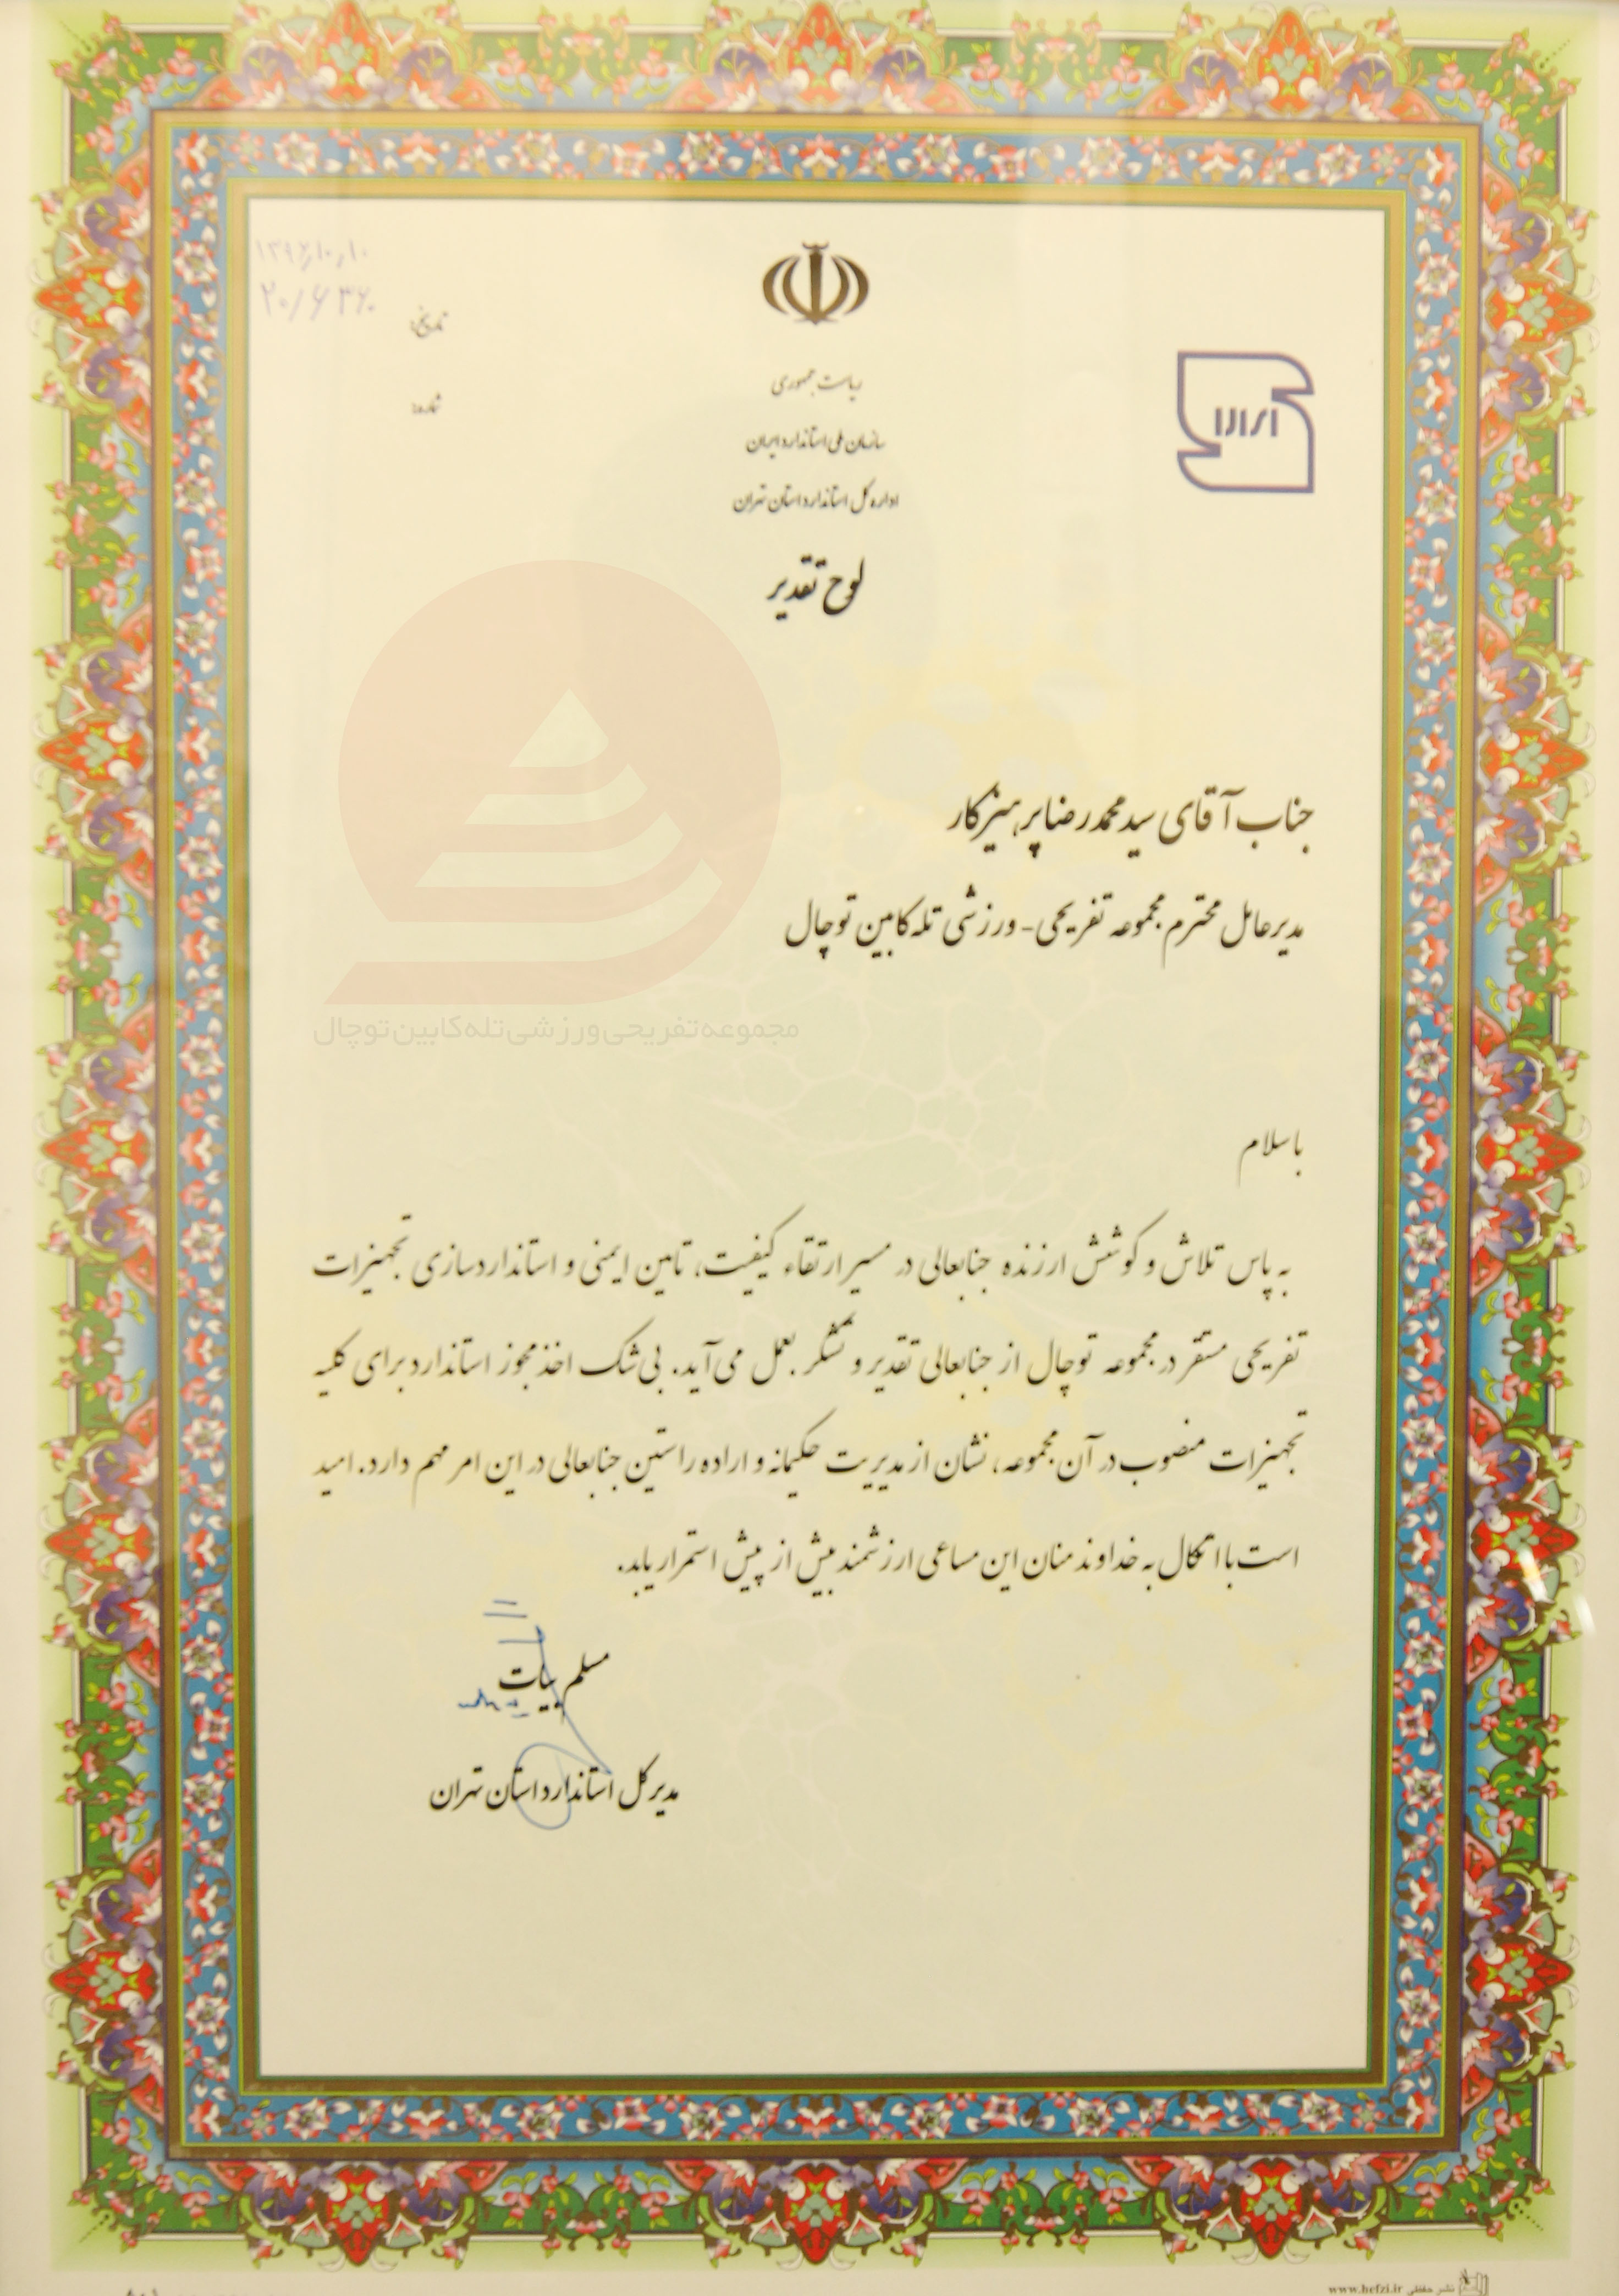 ریاست جمهوری
سازمان ملی استاندارد ایران
اداره کل استاندارد استان تهران
تاریخ:
شماره:
لوح تقدیر
جناب آقای سید محمدرضا پرهیزکار
مدیرعامل محترم مجموعه تفریحی - ورزشی تله کابین توچال
مجموعه تفریحی ورزشی تله کابین توچال
با سلام
به پاس تلاش و کوشش ارزنده جنابعالی در مسیر ارتقاء کیفیت، تامین ایمنی و استانداردسازی تجهیزات
تفریحی مستقر در مجموعه توچال از جنابعالی تقدیر و تشکر بعمل می آید. بی شک اخذ مجوز استاندارد برای کلیه
تجهیزات منصوب در آن مجموعه، نشان از مدیریت حکیمانه و اراده راستین جنابعالی در این امر مهم دارد. امید
است با اتکال به خداوند منان این مساعی ارزشمند بیش از پیش استمرار یابد.
مسلم بیات
مدیرکل استاندارد استان تهران
نشر حفظی www.hefzi.ir